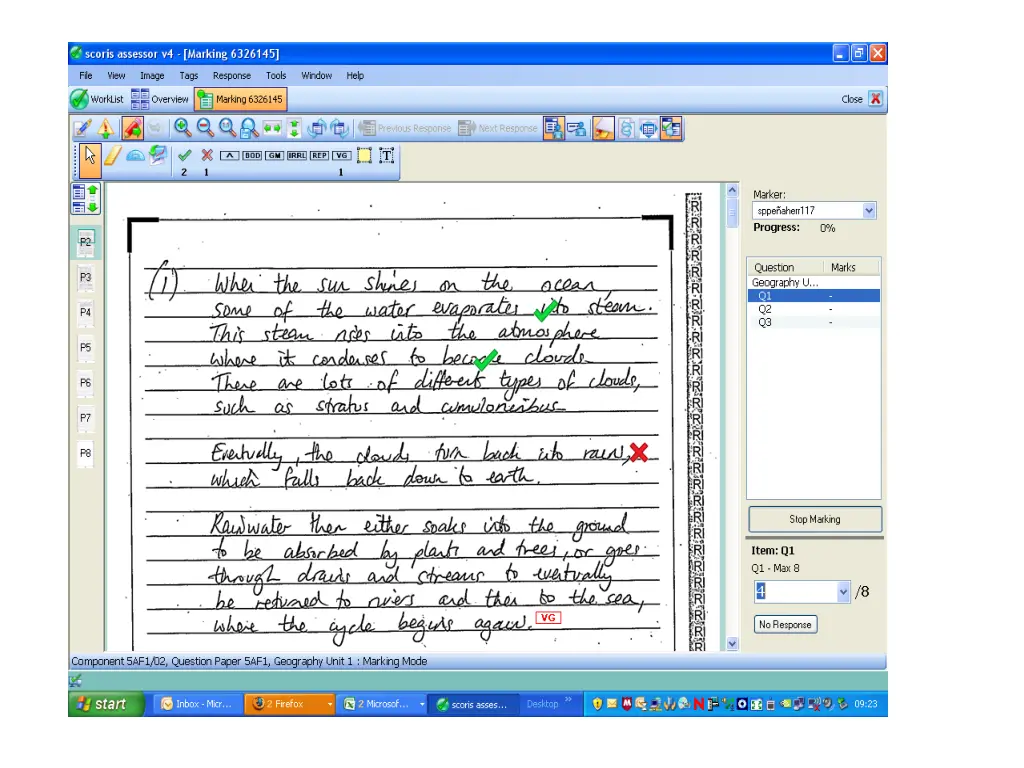 scoris assessor v4 - [Marking 6326145]
File View Image Tags Response Tools Window Help
WorkList Overview Marking 6326145 Close
Previous Response Next Response
BOD GM IRRL REP VG T
2 1 1
P2
P3
P4
P5
P6
P7
P8
(1) When the sun shines on the ocean,
some of the water evaporates into steam.
This steam rises into the atmosphere
where it condenses to become clouds
There are lots of different types of clouds,
such as stratus and cumulonimbus
Eventually, the clouds turn back into rain,
which falls back down to earth.
Rainwater then either soaks into the ground
to be absorbed by plants and trees, or goes
through drains and streams to eventually
be returned to rivers and then to the sea,
where the cycle begins again. VG
Marker:
sppeñaherr117
Progress: 0%
Question Marks
Geography U...
Q1 -
Q2 -
Q3 -
Stop Marking
Item: Q1
Q1 - Max 8
4 /8
No Response
Component 5AF1/02, Question Paper 5AF1, Geography Unit 1 : Marking Mode
start Inbox - Micr... 2 Firefox 2 Microsof... scoris asses... Desktop » 09:23